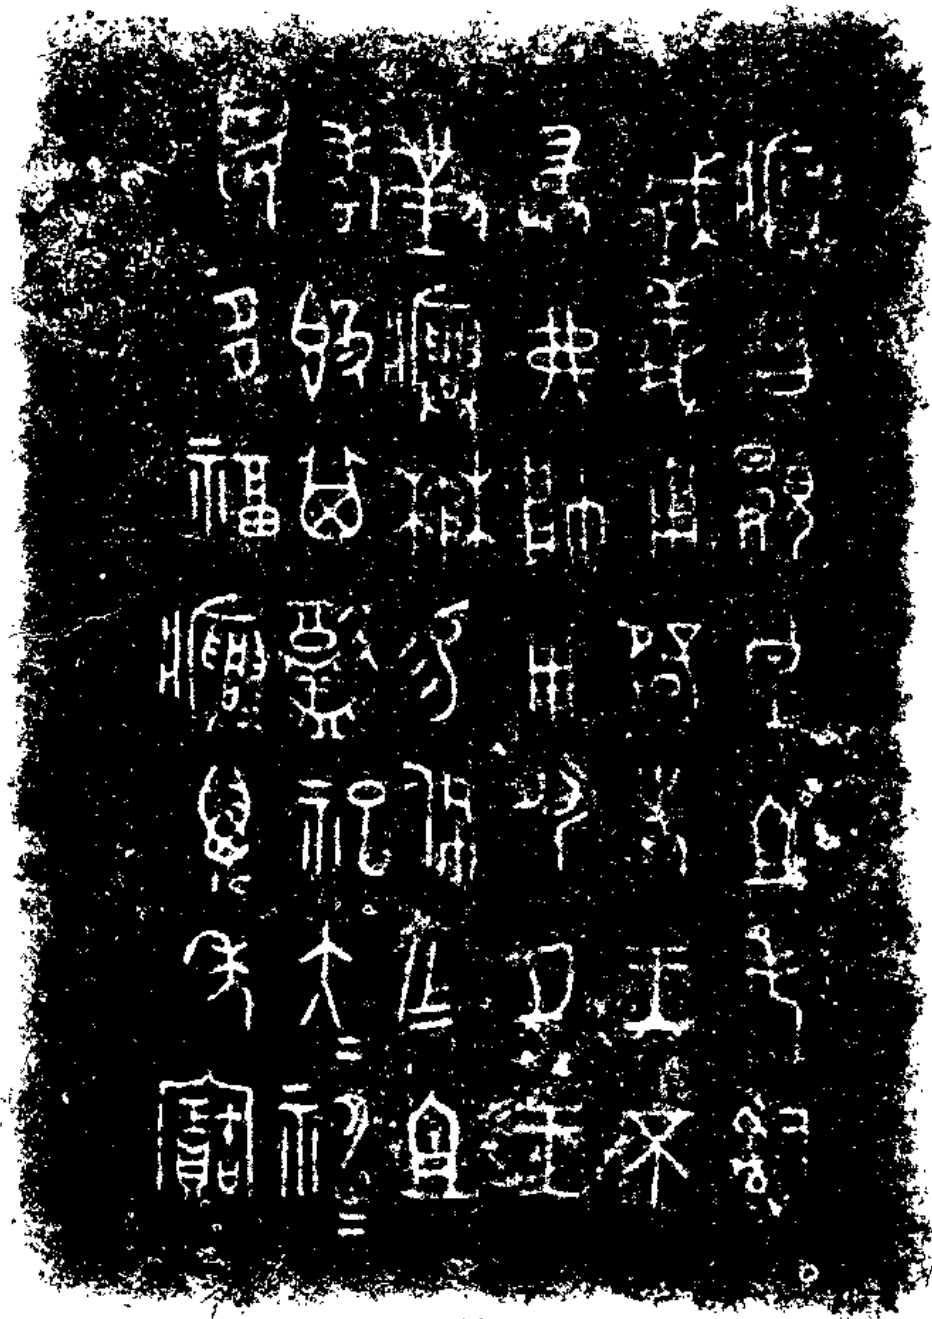 𤼈曰覭皇且考司
威義用辟先王不
敢弗帥用夙夕王
對𤼈楙易佩乍且
考簋其𩰬祀大＝神＝
妥多福𤼈萬年寶